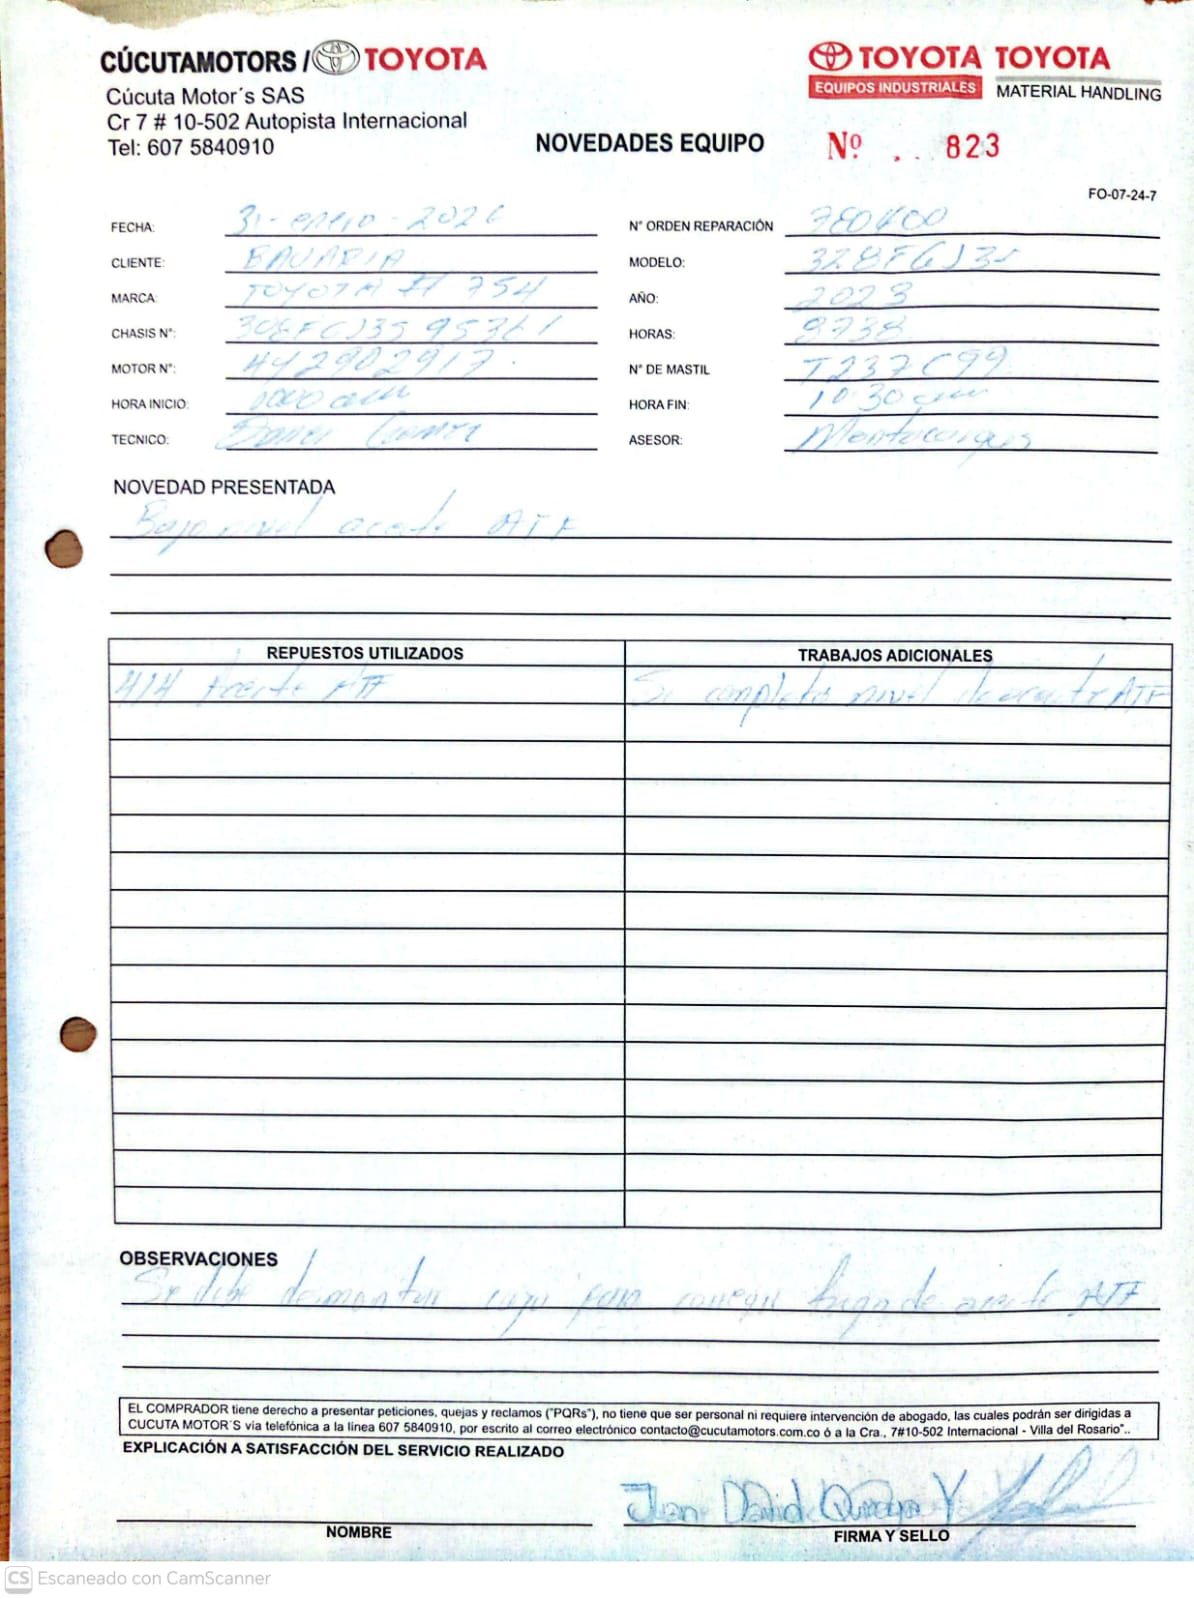 CÚCUTAMOTORS / TOYOTA
Cúcuta Motor´s SAS
Cr 7 # 10-502 Autopista Internacional
Tel: 607 5840910
TOYOTA TOYOTA
EQUIPOS INDUSTRIALES MATERIAL HANDLING
NOVEDADES EQUIPO
Nº . . . 823
FO-07-24-7
FECHA: 31-enero-2026 N° ORDEN REPARACIÓN
CLIENTE: BAVARIA MODELO:
MARCA: TOYOTA # 754 AÑO: 2023
CHASIS N°: HORAS: 9738
MOTOR N°: 4Y2902917 N° DE MASTIL
HORA INICIO: HORA FIN: 10:30 am
TECNICO: ASESOR: Montacargas
NOVEDAD PRESENTADA
Bajo nivel aceite ATF
REPUESTOS UTILIZADOS TRABAJOS ADICIONALES
Aceite ATF Se completa nivel de aceite ATF
OBSERVACIONES
Se debe desmontar caja para corregir fuga de aceite ATF
EL COMPRADOR tiene derecho a presentar peticiones, quejas y reclamos ("PQRs"), no tiene que ser personal ni requiere intervención de abogado, las cuales podrán ser dirigidas a
CUCUTA MOTOR´S via telefónica a la línea 607 5840910, por escrito al correo electrónico contacto@cucutamotors.com.co ó a la Cra., 7#10-502 Internacional - Villa del Rosario"..
EXPLICACIÓN A SATISFACCIÓN DEL SERVICIO REALIZADO
Juan David
NOMBRE FIRMA Y SELLO
CS Escaneado con CamScanner